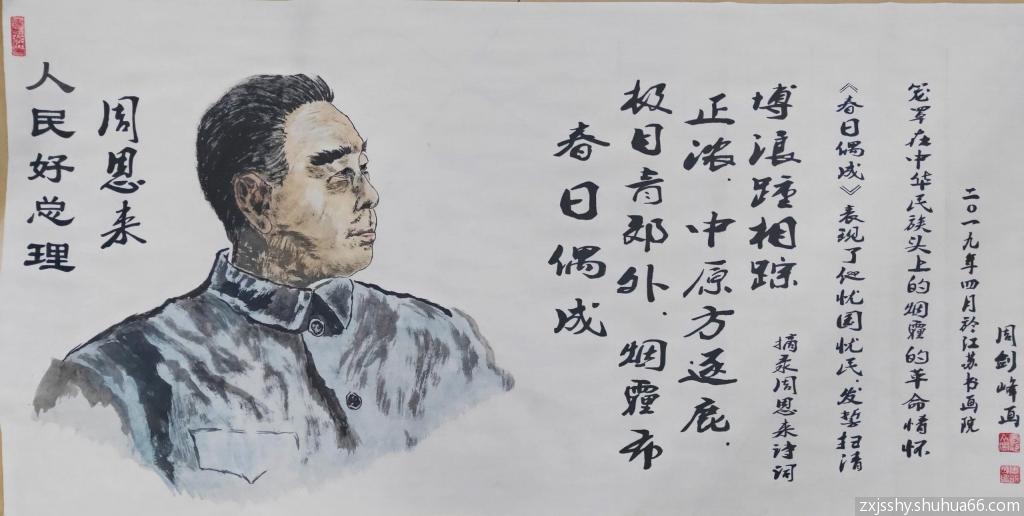 人民好总理
周恩来
春日偶成
极目青郊外，烟霾布
正浓．中原方逐鹿．
博浪踵相踪
摘录周恩来诗词
《春日偶成》表现了他忧国忧民、发誓扫清
笼罩在中华民族头上的烟霾的革命情怀
二〇一九年四月於江苏书画院
周剑峰画
zxjsshy.shuhua66.com